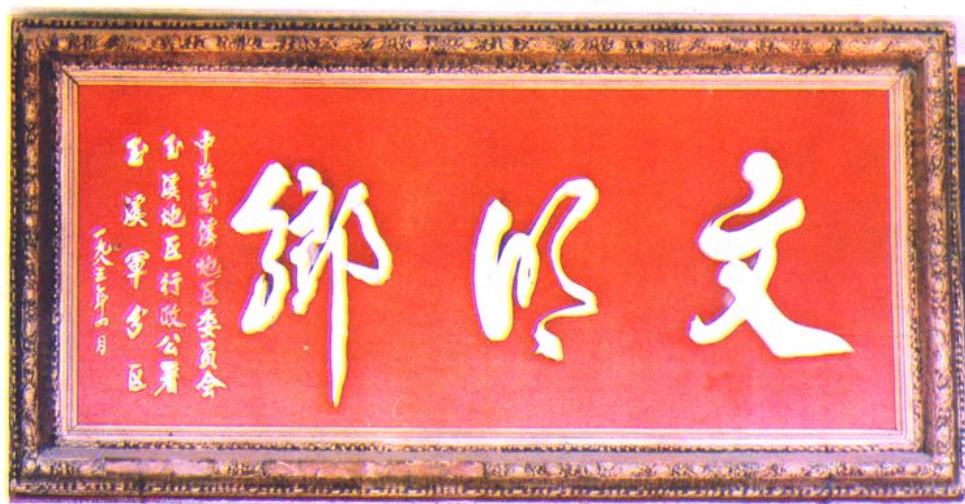 文明鄉
中共玉溪地区委员会
玉溪地区行政公署
玉溪軍分区
一九八五年四月